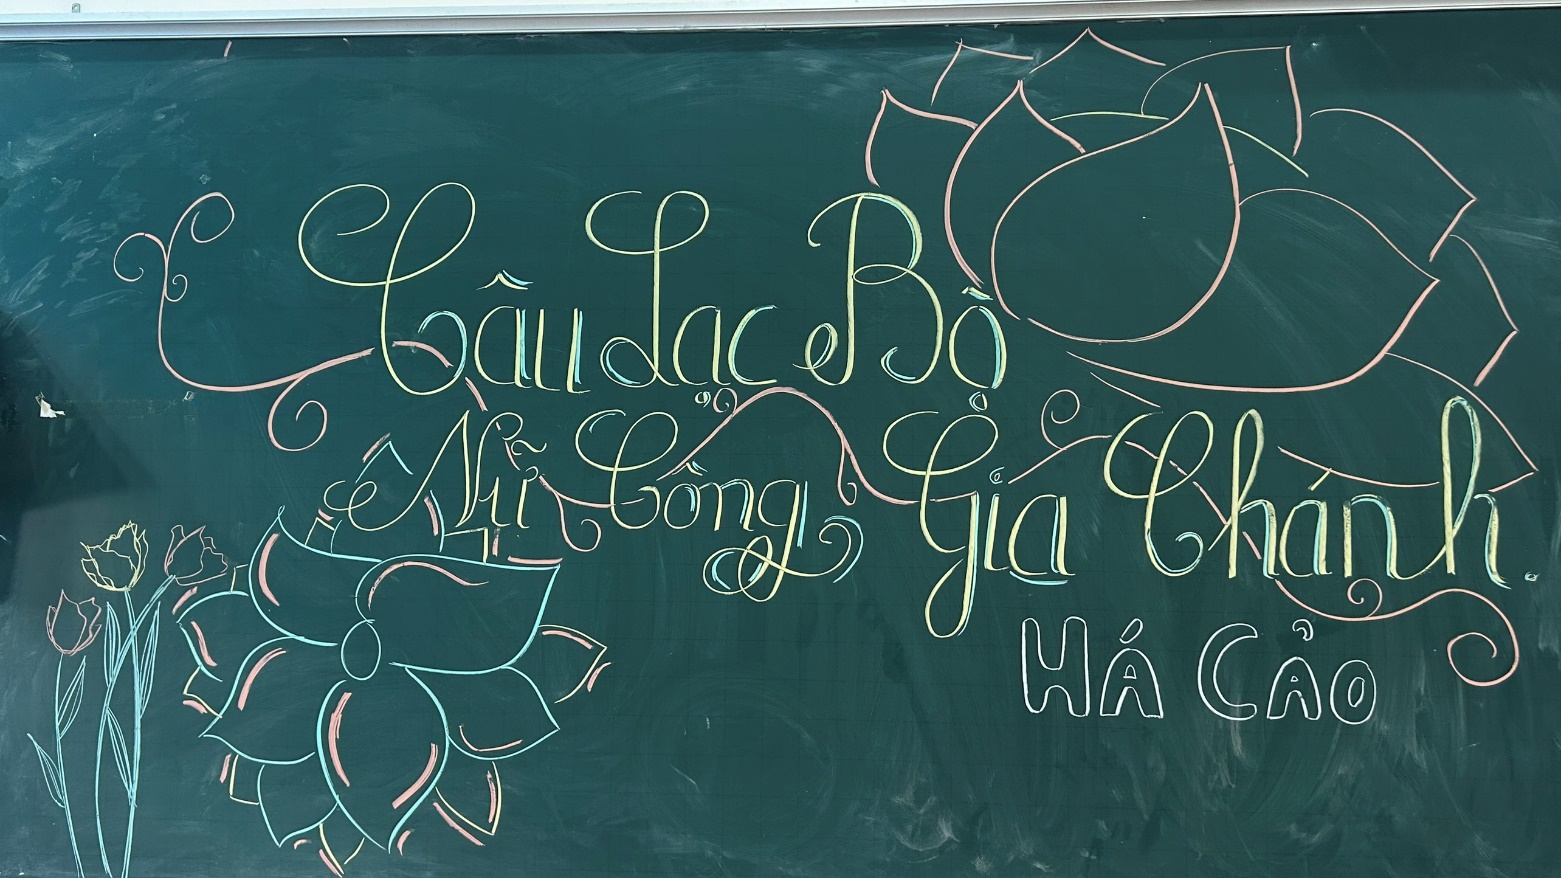 Câu Lạc Bộ
Nữ Công Gia Chánh.
HÁ CẢO